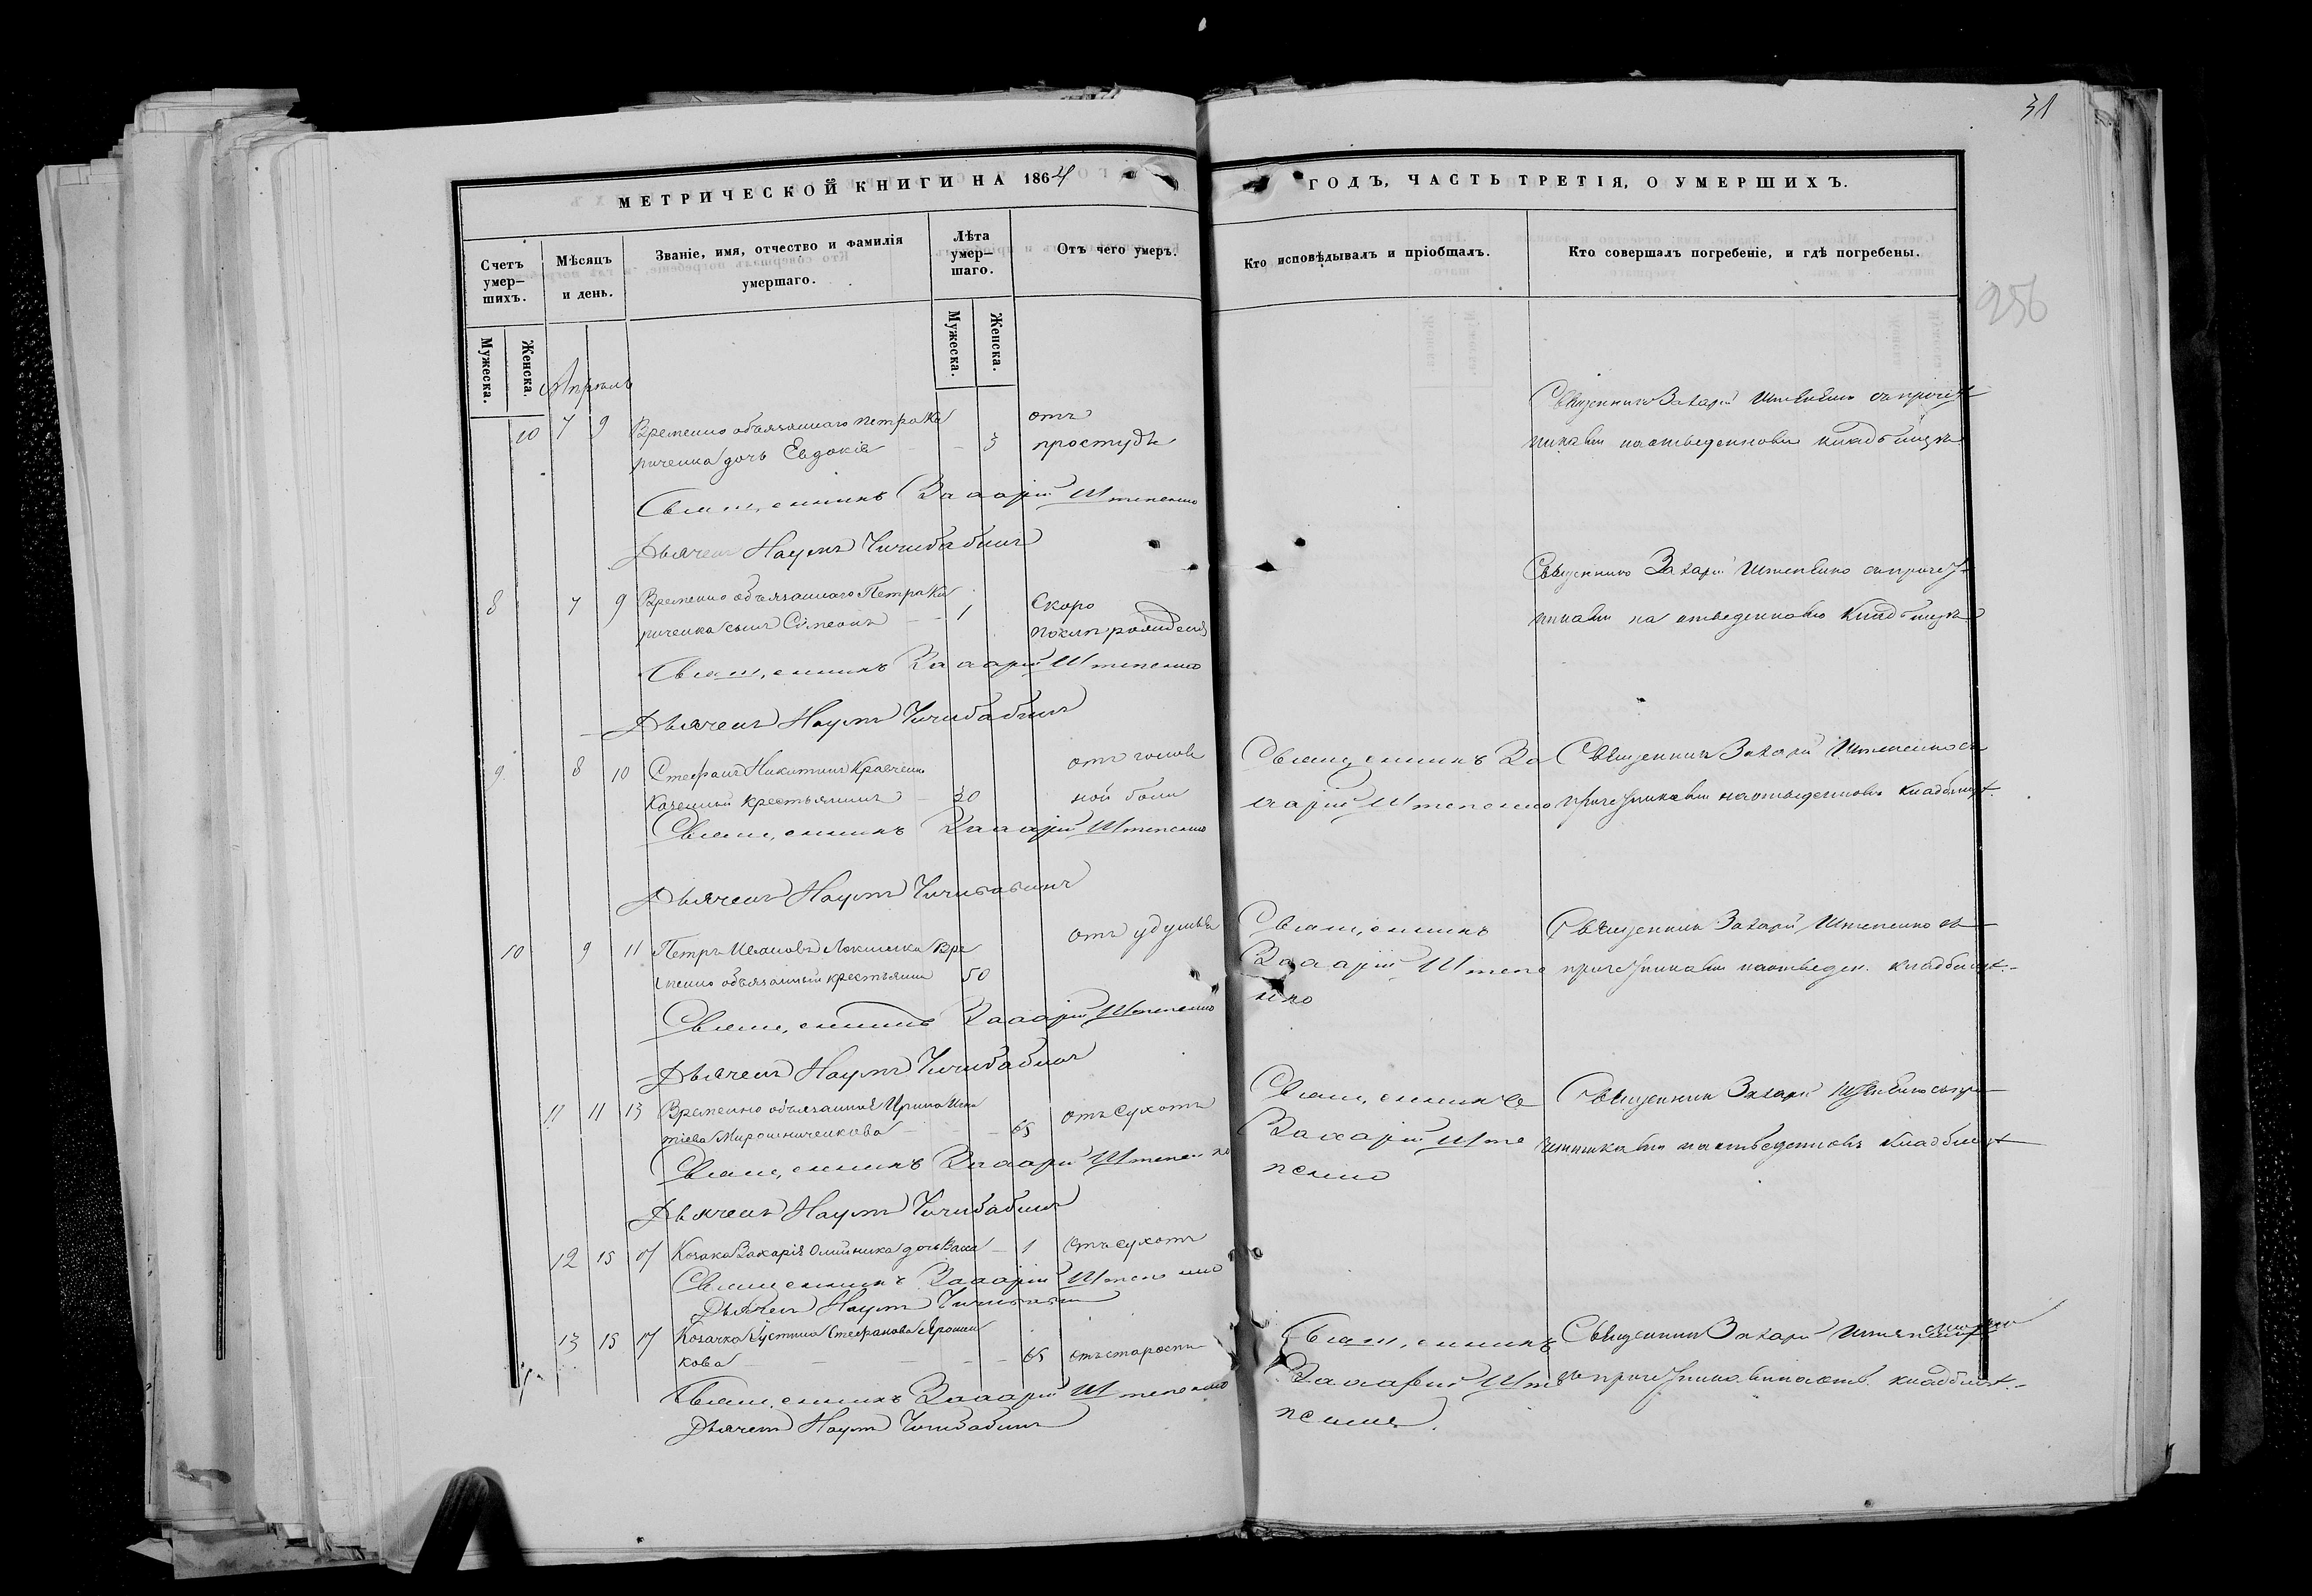 31
МЕТРИЧЕСКОЙ КНИГИ НА 1864
ГОДЪ, ЧАСТЬ ТРЕТІЯ, О УМЕРШИХЪ.
Счетъ умер-шихъ.
Мѣсяцъ и день.
Званіе, имя, отчество и фамилія умершаго.
Лѣта умер-шаго.
Отъ чего умеръ.
Кто исповѣдывалъ и пріобщалъ.
Кто совершалъ погребеніе, и гдѣ погребены.
256
Мужеска.
Женска.
Мужеска.
Женска.
Апрѣль
10 7 9 Временно обязаннаго Петра Ки 3 отъ
риченка дочь Евдокія простуды
Священникъ Захарій Штепенко
Дьячекъ Наумъ Чичибабинъ
Священникъ Захарій Штепенко съ приче
тниками на отведенномъ кладбищѣ
8 7 9 Временно обязаннаго Петра Ки 1 Скоро
риченка сынъ Симеонъ по
Священникъ Захарій Штепенко
Дьячекъ Наумъ Чичибабинъ
Священникъ Захарій Штепенко съ приче
тниками на отведенномъ кладбищѣ
9 8 10 Стефанъ Никитинъ Кравченко отъ голов
Казенный крестьянинъ 30 ной боли
Священникъ Захарій Штепенко
Дьячекъ Наумъ Чичибабинъ
Священникъ За
харій Штепенко
Священникъ Захарій Штепенко съ
причетниками на отведенномъ кладбищѣ.
10 9 11 Петръ Ивановъ Вре отъ удушья
менно обязанный крестьянин 50
Священникъ Захарій Штепенко
Дьячекъ Наумъ Чичибабинъ
Священникъ
Захарій Штепе
нко
Священникъ Захарій Штепенко съ
причетниками на отведен. кладбищѣ.
11 11 13 Временно обязанная Ирина Игна отъ сухоты
тіева Мирошниченкова 65
Священникъ Захарій Штепенко
Дьячекъ Наумъ Чичибабинъ
Священникъ
Захарій Ште
пенко
Священникъ Захарій Штепенко съ при
четниками на отведенномъ кладбищѣ
12 15 17 Козака Захарія Олийника дочь Васса 1 Отъ сухоты
Священникъ Захарій Штепенко
Дьячекъ Наумъ Чичибабинъ
13 15 17 Козачка Іустина Стефанова Ярошен
кова 65 отъ старости
Священникъ Захарій Штепенко
Дьячекъ Наумъ Чичибабинъ
Священникъ
Захарій Ште
пенко
Священникъ Захарій Штепенко
съ причетниками на отв. кладбищѣ.